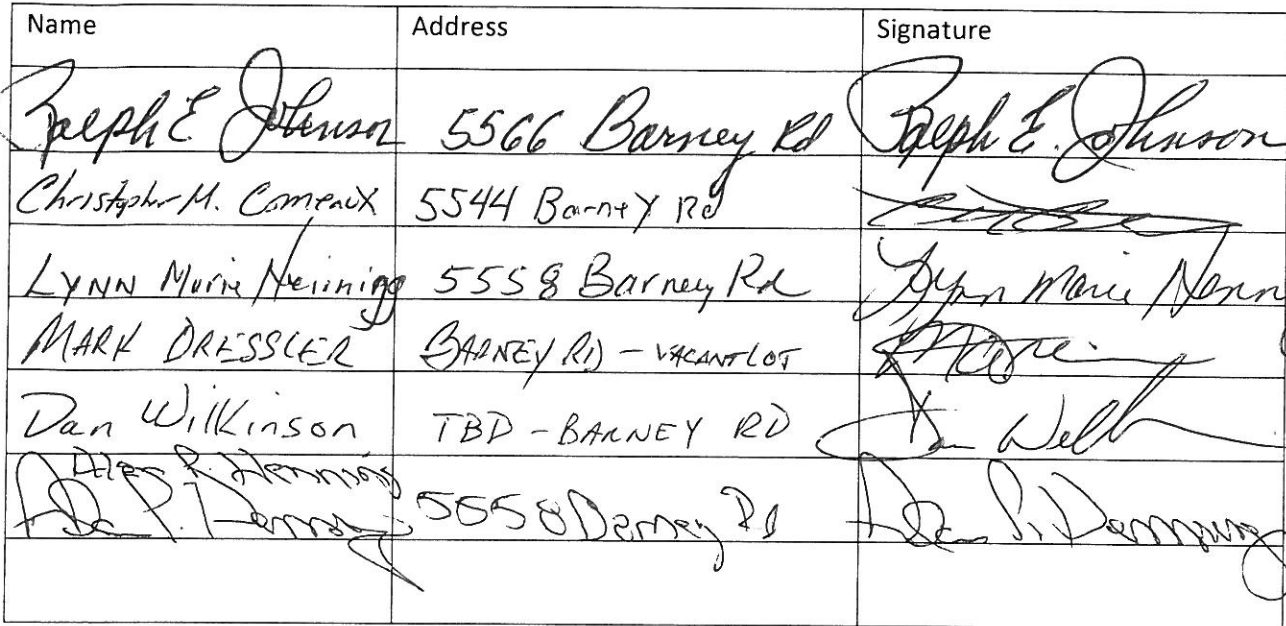 Name Address Signature
Ralph E Johnson 5566 Barney Rd Ralph E. Johnson
Christopher M. Comeaux 5544 Barney Rd
LYNN Marie Henning 5558 Barney Rd Lynn Marie Henn
MARK DRESSLER BARNEY RD - VACANT LOT
Dan Wilkinson TBD - BARNEY RD Dan Wilk
Henning
5558 Barney Rd